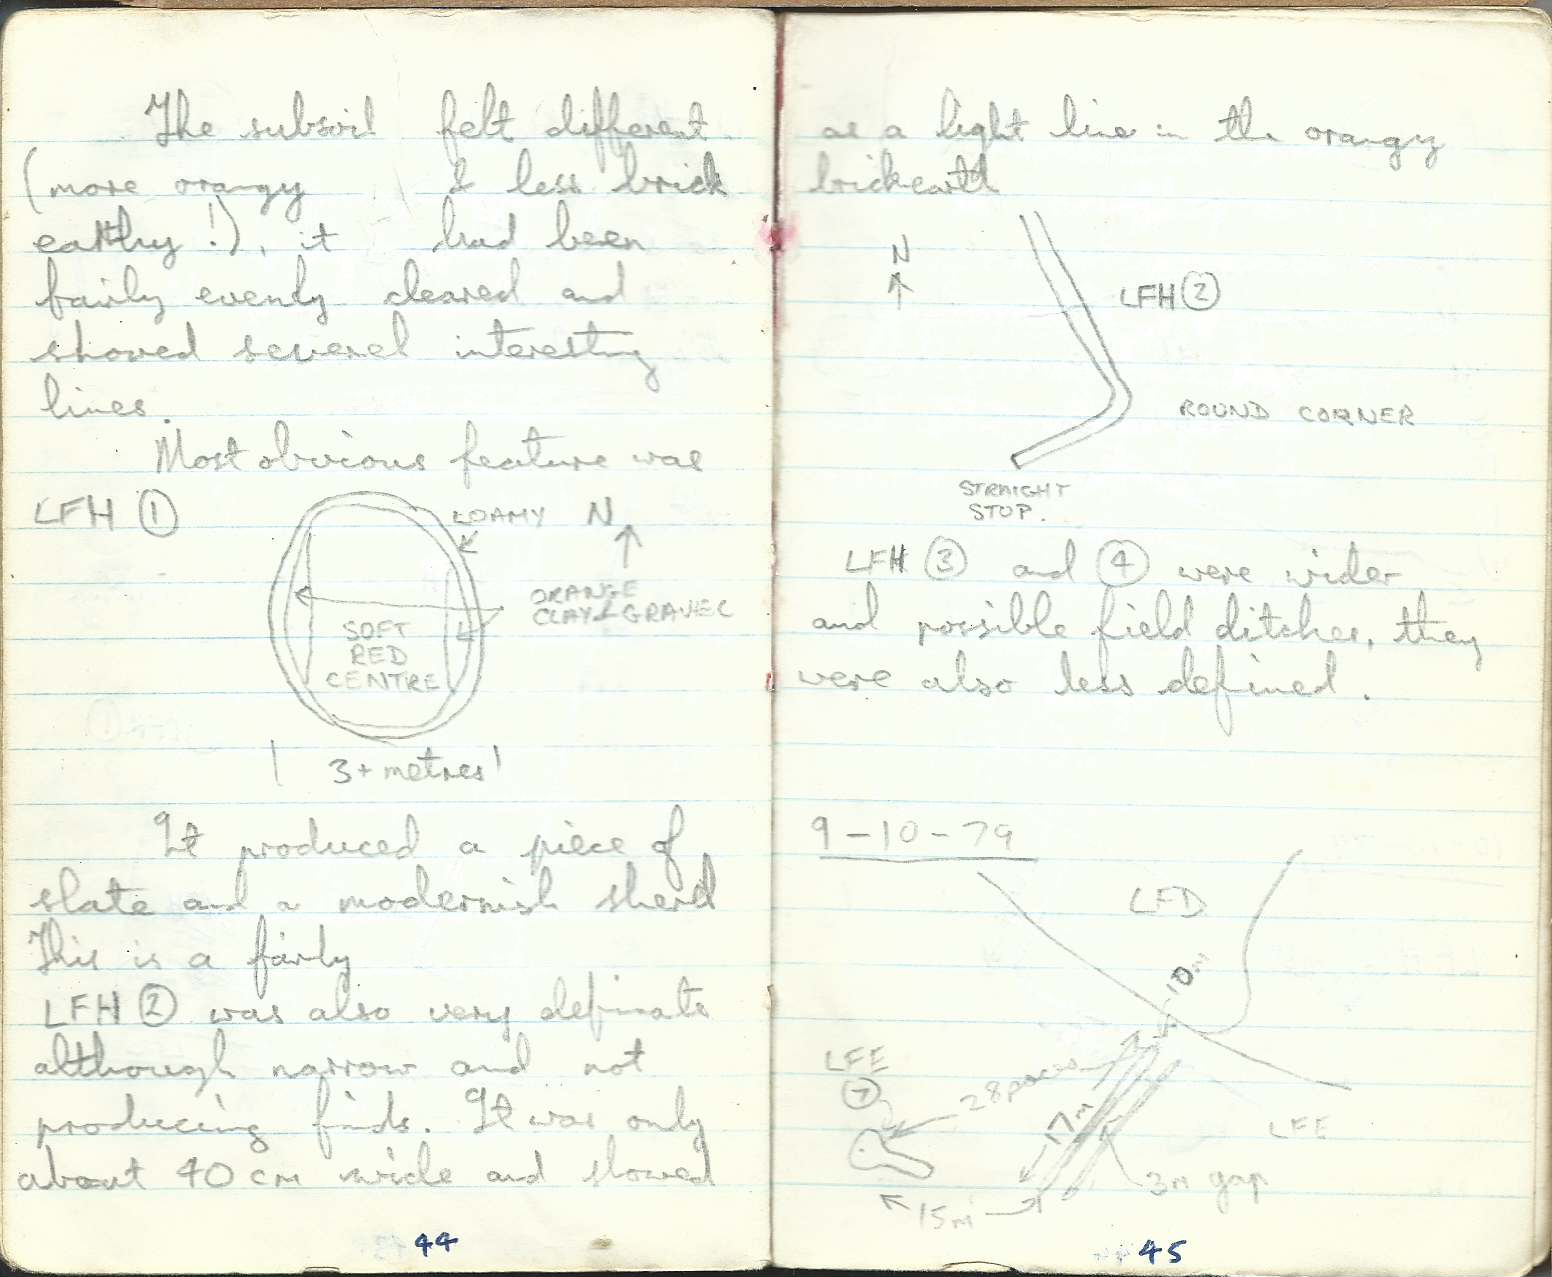 The subsoil felt different
(more orangy & less brick
earthy!), it had been
fairly evenly cleared and
showed several interesting
lines.
Most obvious feature was
LFH ①
LOAMY
N
ORANGE
CLAY & GRAVEL
SOFT
RED
CENTRE
3+ metres
It produced a piece of
slate and a modernish sherd
This is a fairly
LFH ② was also very definate
although narrow and not
producing finds. It was only
about 40 cm wide and showed
44
as a light line in the orangy
brickearth
N
LFH ②
ROUND CORNER
STRAIGHT
STOP.
LFH ③ and ④ were wider
and possible field ditches, they
were also less defined.
9-10-79
LFD
10m
LFE
⑦
28 paces
17m
LFE
3m gap
15m
45